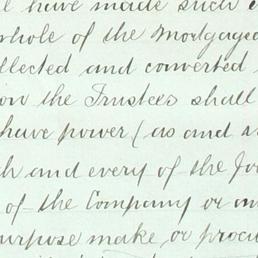 have made such
whole of the Mortgaged
llected and converted
the Trustees shall
have power (as and
and every of the
of the Company or
urpose make or procu